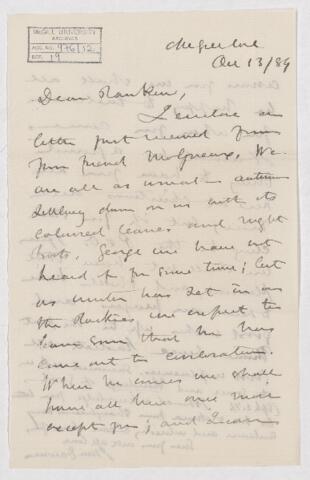 McGILL UNIVERSITY
ARCHIVES
ACC. NO. 976/12
REF. 19
Oct 13/89
Dear Rankine,
I enclose a
letter just received from
your friend We
are all as usual – autumn
settling down on us with its
coloured leaves and night
frosts. George we have not
heard of for some time; but
as winter has set in in
the Rockies we expect to
learn soon that he has
come out to civilization.
When he comes we shall
have all here once more
except you; and I can